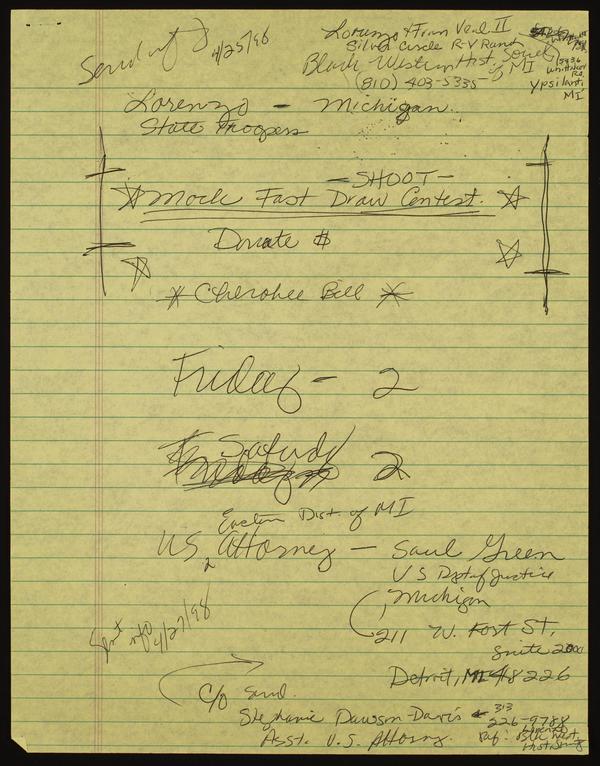 Send info
4/25/98
Lorenzo & Fran Veal II
Silver Circle R-V Ranch
Black Western Hist. Society
of MI
(810) 403-5335
5936
Whittaker
Rd.
Ypsilanti,
MI
Lorenzo - Michigan
State Troopers
-SHOOT-
Mock Fast Draw Contest.
Donate $
* Cherokee Bill *
Friday - 2
Saturday 2
Eastern Dist. of MI
US Attorney - Saul Green
U S Dpt of Justice
Michigan
211 W. Fort ST,
Suite 2000
Detroit, MI 48226
Sent info 4/27/98
c/o Send
Stephanie Dawson-Davis
313
226-9788
Asst. U.S. Attorney.
Ref: Blk West.
Hist. Soc